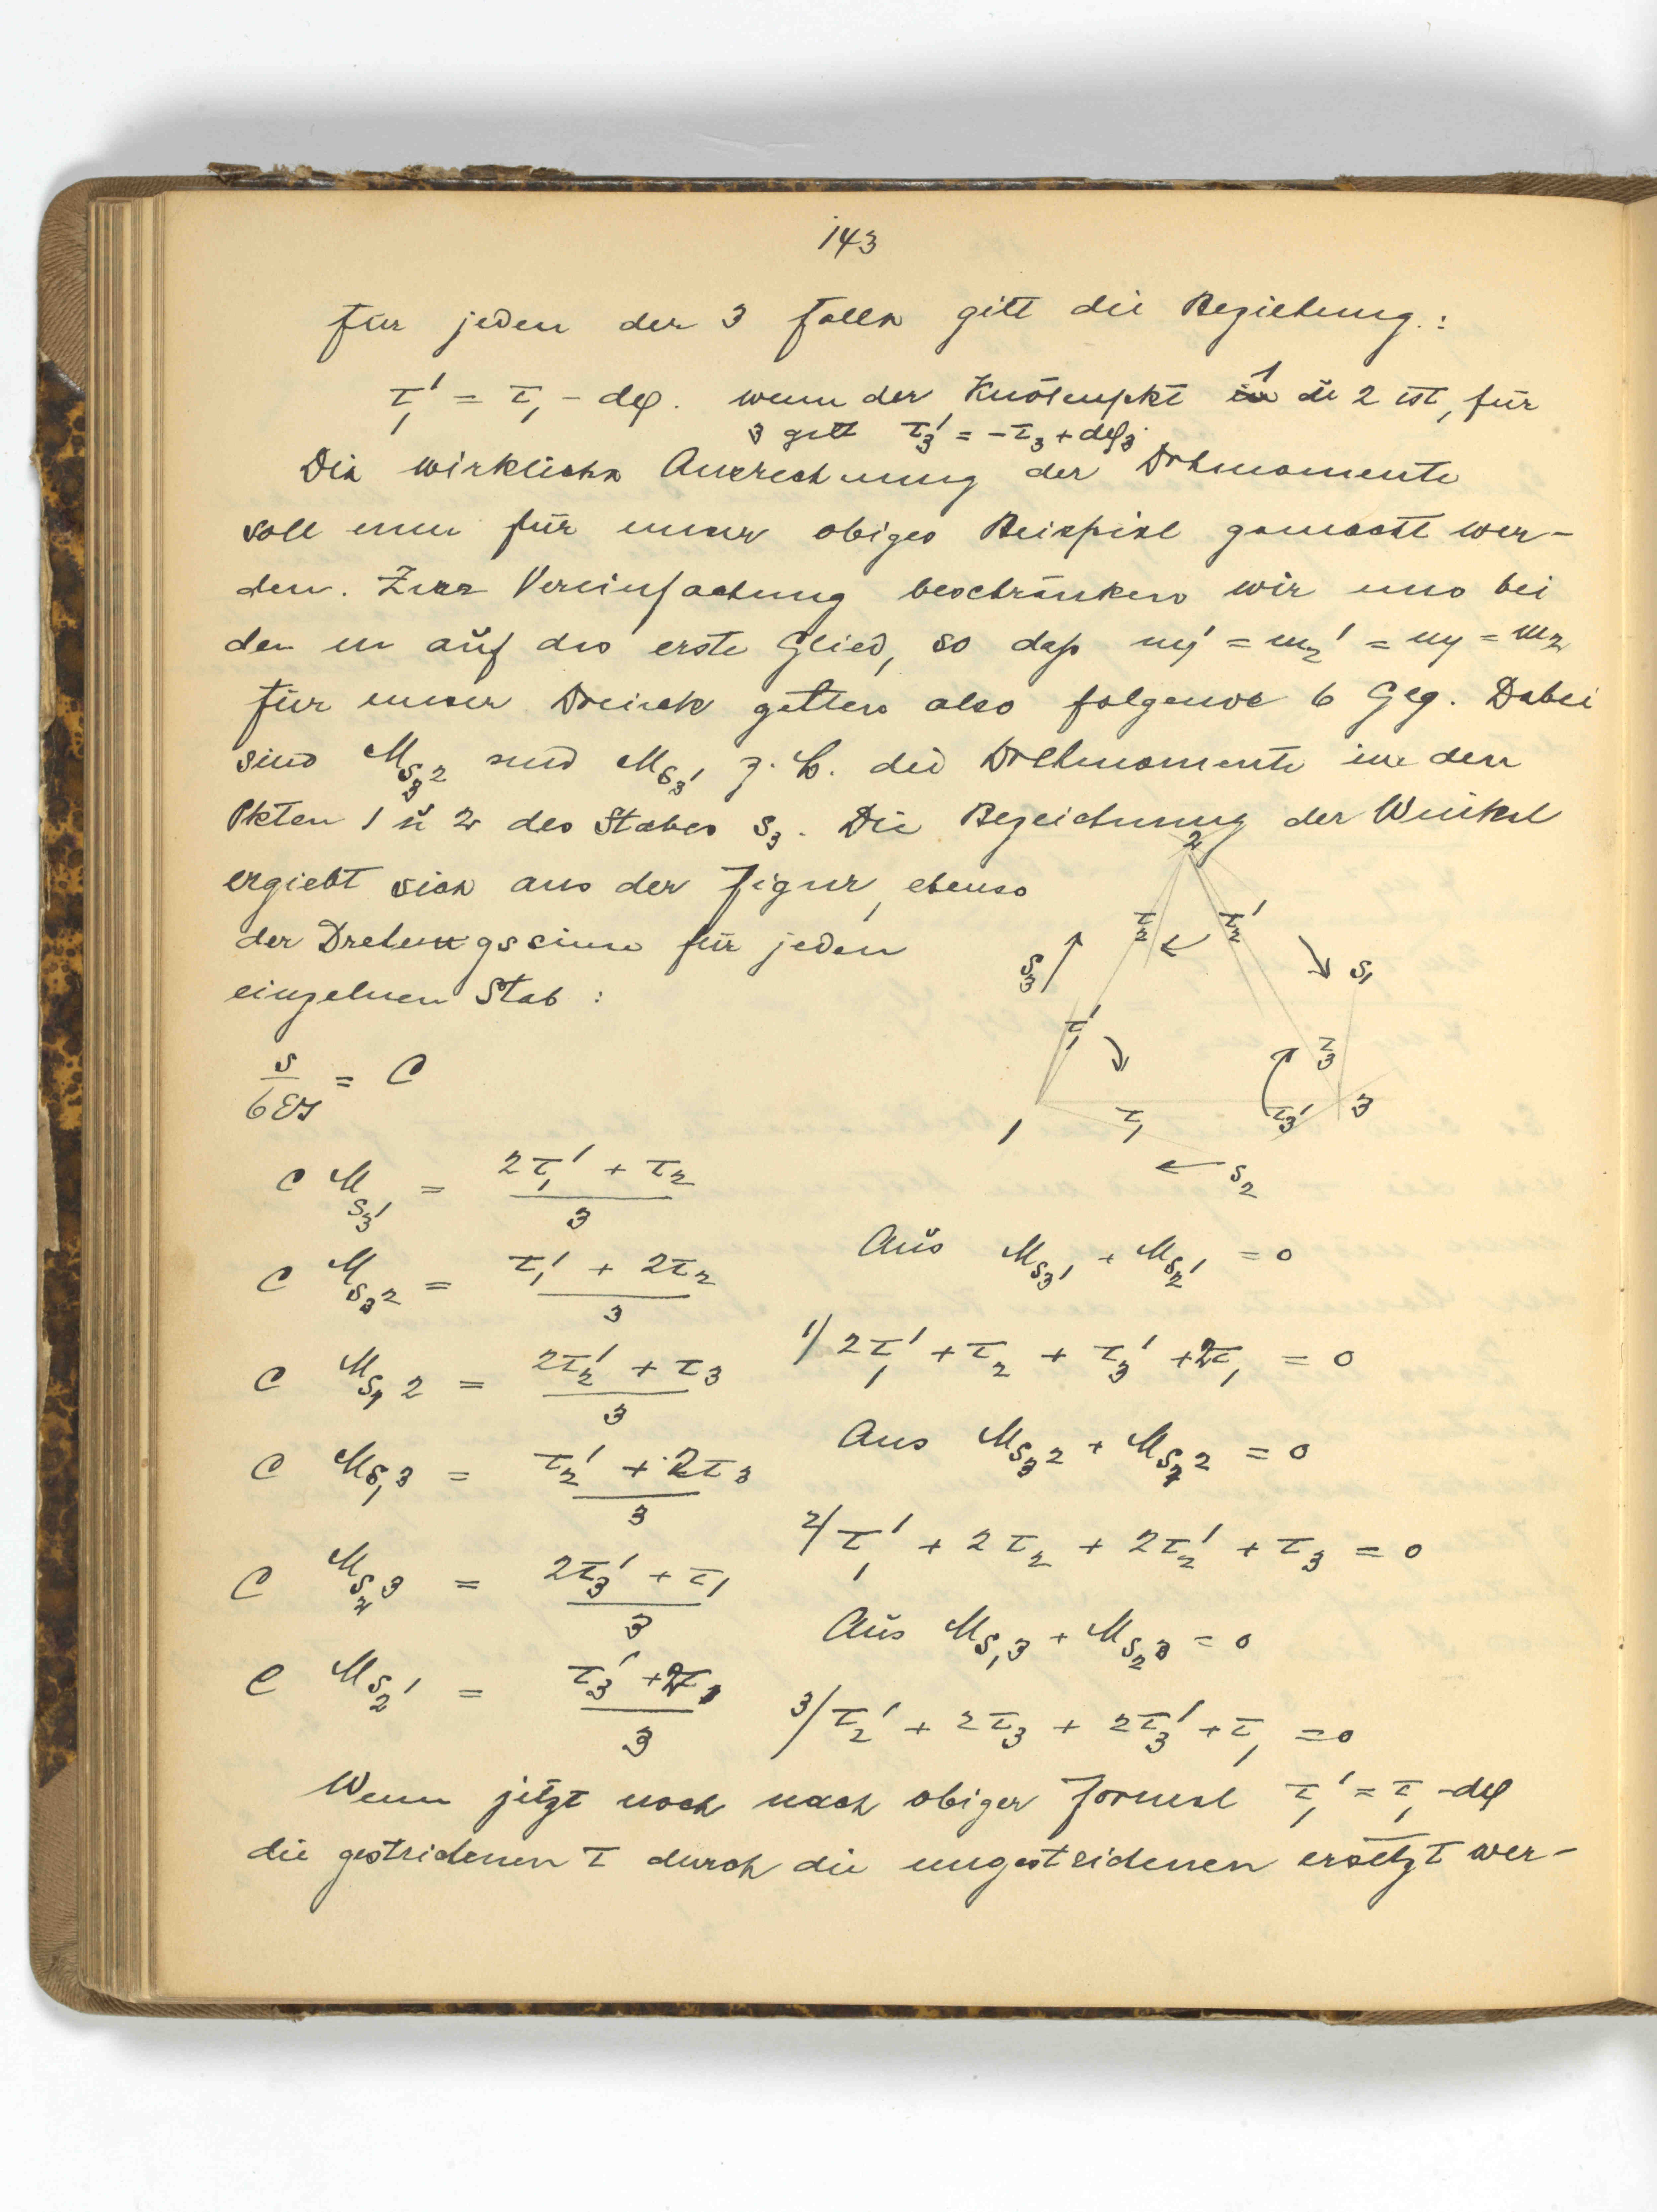 143
Für jeden der 3 Fälle gilt die Beziehung:
τ₁' = τ₁ - dφ. wenn der Knotenpkt 1 u 2 ist, für
3 gilt τ₃' = -τ₃ + dφ₃
Die wirkliche Ausrechnung der Drehmomente
soll nun für unser obiges Beispiel gemacht wer-
den. Zur Vereinfachung beschränken wir uns bei
den m auf das erste Glied, so daß m₁' = m₂' = m₁ = m₂
Für unser Dreieck gelten also folgende 6 Glg. Dabei
sind M_S₃2 und M_S₃1 z. B. die Drehmomente in den
Pkten 1 u 2 des Stabes S₃. Die Bezeichnung der Winkel
ergiebt sich aus der Figur, ebenso
der Drehungssinn für jeden
einzelnen Stab:
2
τ₂ τ₂'
S₃ S₁
τ₁' τ₃
1 τ₁ τ₃' 3
S₂
s/6EJ = C
C M_S₃1 = (2τ₁' + τ₂)/3
C M_S₃2 = (τ₁' + 2τ₂)/3
C M_S₁2 = (2τ₂' + τ₃)/3
C M_S₁3 = (τ₂' + 2τ₃)/3
C M_S₂3 = (2τ₃' + τ₁)/3
C M_S₂1 = (τ₃' + 2τ₁)/3
Aus M_S₃1 + M_S₂1 = 0
1/ 2τ₁' + τ₂ + τ₃' + 2τ₁ = 0
Aus M_S₃2 + M_S₁2 = 0
2/ τ₁' + 2τ₂ + 2τ₂' + τ₃ = 0
Aus M_S₁3 + M_S₂3 = 0
3/ τ₂' + 2τ₃ + 2τ₃' + τ₁ = 0
Wenn jetzt noch nach obiger Formel τ₁' = τ₁ - dφ
die gestrichenen τ durch die ungestrichenen ersetzt wer-